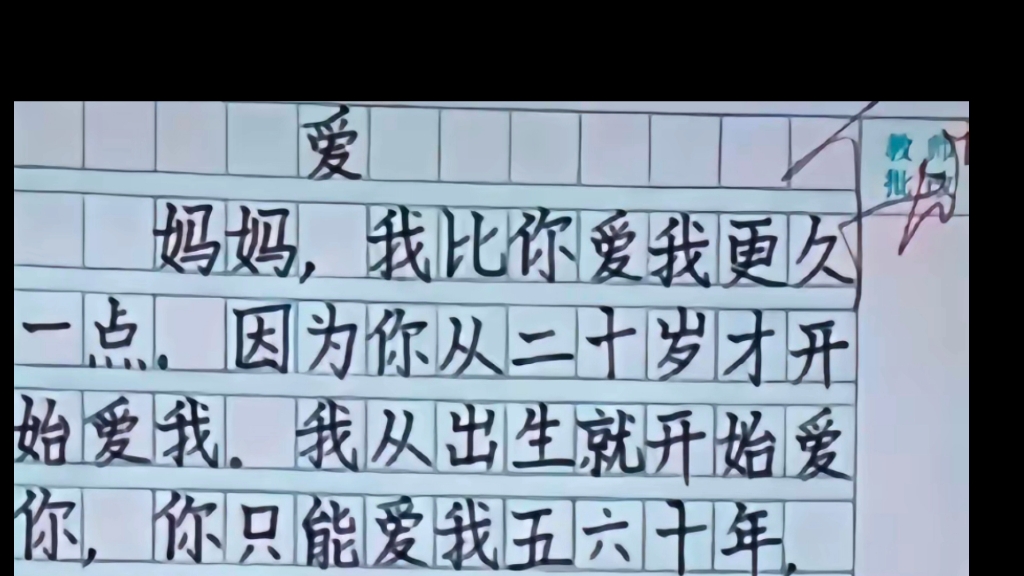 爱
教师
批改
妈妈，我比你爱我更久
一点。因为你从二十岁才开
始爱我。我从出生就开始爱
你，你只能爱我五六十年.